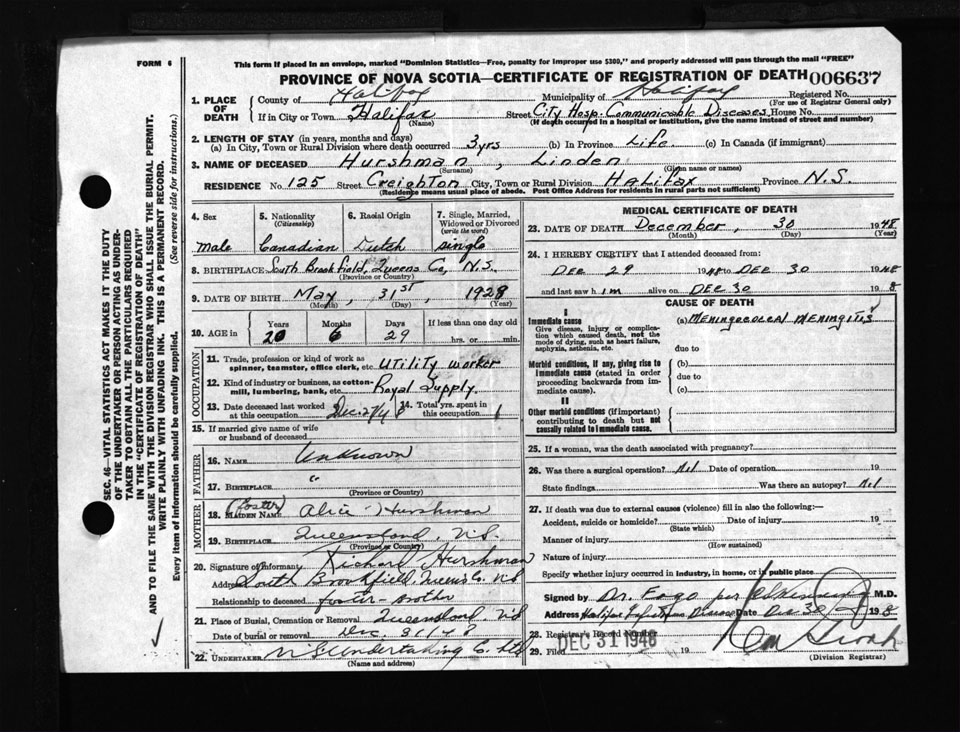 FORM 6
This form if placed in an envelope, marked "Dominion Statistics—Free, penalty for improper use $300," and properly addressed will pass through the mail "FREE"
PROVINCE OF NOVA SCOTIA—CERTIFICATE OF REGISTRATION OF DEATH 006637
1. PLACE OF DEATH
County of Halifax Municipality of Halifax Registered No.
(For use of Registrar General only)
If in City or Town Halifax Street City Hosp. Communicable Diseases House No.
(Name) (If death occurred in a hospital or institution, give the name instead of street and number)
2. LENGTH OF STAY (in years, months and days)
(a) In City, Town or Rural Division where death occurred 3 yrs (b) In Province Life. (c) In Canada (if immigrant)
3. NAME OF DECEASED Hurshman, Linden
(Surname) (Given name or names)
RESIDENCE No. 125 Street Creighton City, Town or Rural Division Halifax Province N.S.
(Residence means usual place of abode. Post Office Address for residents in rural parts not sufficient)
4. Sex
male
5. Nationality
(Citizenship)
Canadian
6. Racial Origin
Dutch
7. Single, Married, Widowed or Divorced
(write the word)
single
8. BIRTHPLACE South Brookfield, Queens Co, N.S.
(Province or Country)
9. DATE OF BIRTH May, 31st, 1928
(Month) (Day) (Year)
10. AGE in
Years Months Days If less than one day old
20 6 29 hrs. or min.
OCCUPATION
11. Trade, profession or kind of work as
spinner, teamster, office clerk, etc. Utility worker
12. Kind of industry or business, as cotton-
mill, lumbering, bank, etc. Royal Supply.
13. Date deceased last worked
at this occupation
14. Total yrs. spent in
this occupation 1
15. If married give name of wife
or husband of deceased
FATHER
16. Name Unknown
17. Birthplace "
(Province or Country)
MOTHER
18. Maiden Name (Foster) Alice Hurshman
19. Birthplace Queensland. N.S.
(Province or Country)
20. Signature of Informant Richard Hurshman
Address South Brookfield, Queens Co. NS
Relationship to deceased foster-brother
21. Place of Burial, Cremation or Removal Queensland. NS
Date of burial or removal Dec. 31/48
22. UNDERTAKER N S Undertaking Co. Ltd
(Name and address)
MEDICAL CERTIFICATE OF DEATH
23. DATE OF DEATH December, 30 1948
(Month) (Day) (Year)
24. I HEREBY CERTIFY that I attended deceased from:
Dec 29 1948 to Dec 30 1948
and last saw him alive on Dec 30 1948
CAUSE OF DEATH
I
Immediate cause
Give disease, injury or complica-
tion which caused death, not the
mode of dying, such as heart failure,
asphyxia, asthenia, etc.
(a) Meningococcal Meningitis
due to
Morbid conditions, if any, giving rise to
immediate cause (stated in order
proceeding backwards from im-
mediate cause).
(b)
due to
(c)
II
Other morbid conditions (if important)
contributing to death but not
causally related to immediate cause.
25. If a woman, was the death associated with pregnancy?
26. Was there a surgical operation? Nil Date of operation 19
State findings Was there an autopsy? Nil
27. If death was due to external causes (violence) fill in also the following:—
Accident, suicide or homicide? Date of injury 19
(State which)
Manner of injury
(How sustained)
Nature of injury
Specify whether injury occurred in industry, in home, or in public place
Signed by Dr. Fogo per M.D.
Address Halifax Date Dec 30 1948
28. Registrar's Record Number
DEC 31 1948
29. Filed 19
(Division Registrar)
SEC. 46—VITAL STATISTICS ACT MAKES IT THE DUTY
OF THE UNDERTAKER OR PERSON ACTING AS UNDER-
TAKER TO OBTAIN ALL THE PARTICULARS REQUIRED
IN THE "CERTIFICATE OF REGISTRATION OF DEATH"
AND TO FILE THE SAME WITH THE DIVISION REGISTRAR WHO SHALL ISSUE THE BURIAL PERMIT.
WRITE PLAINLY WITH UNFADING INK. THIS IS A PERMANENT RECORD.
Every item of Information should be carefully supplied. (See reverse side for instructions.)